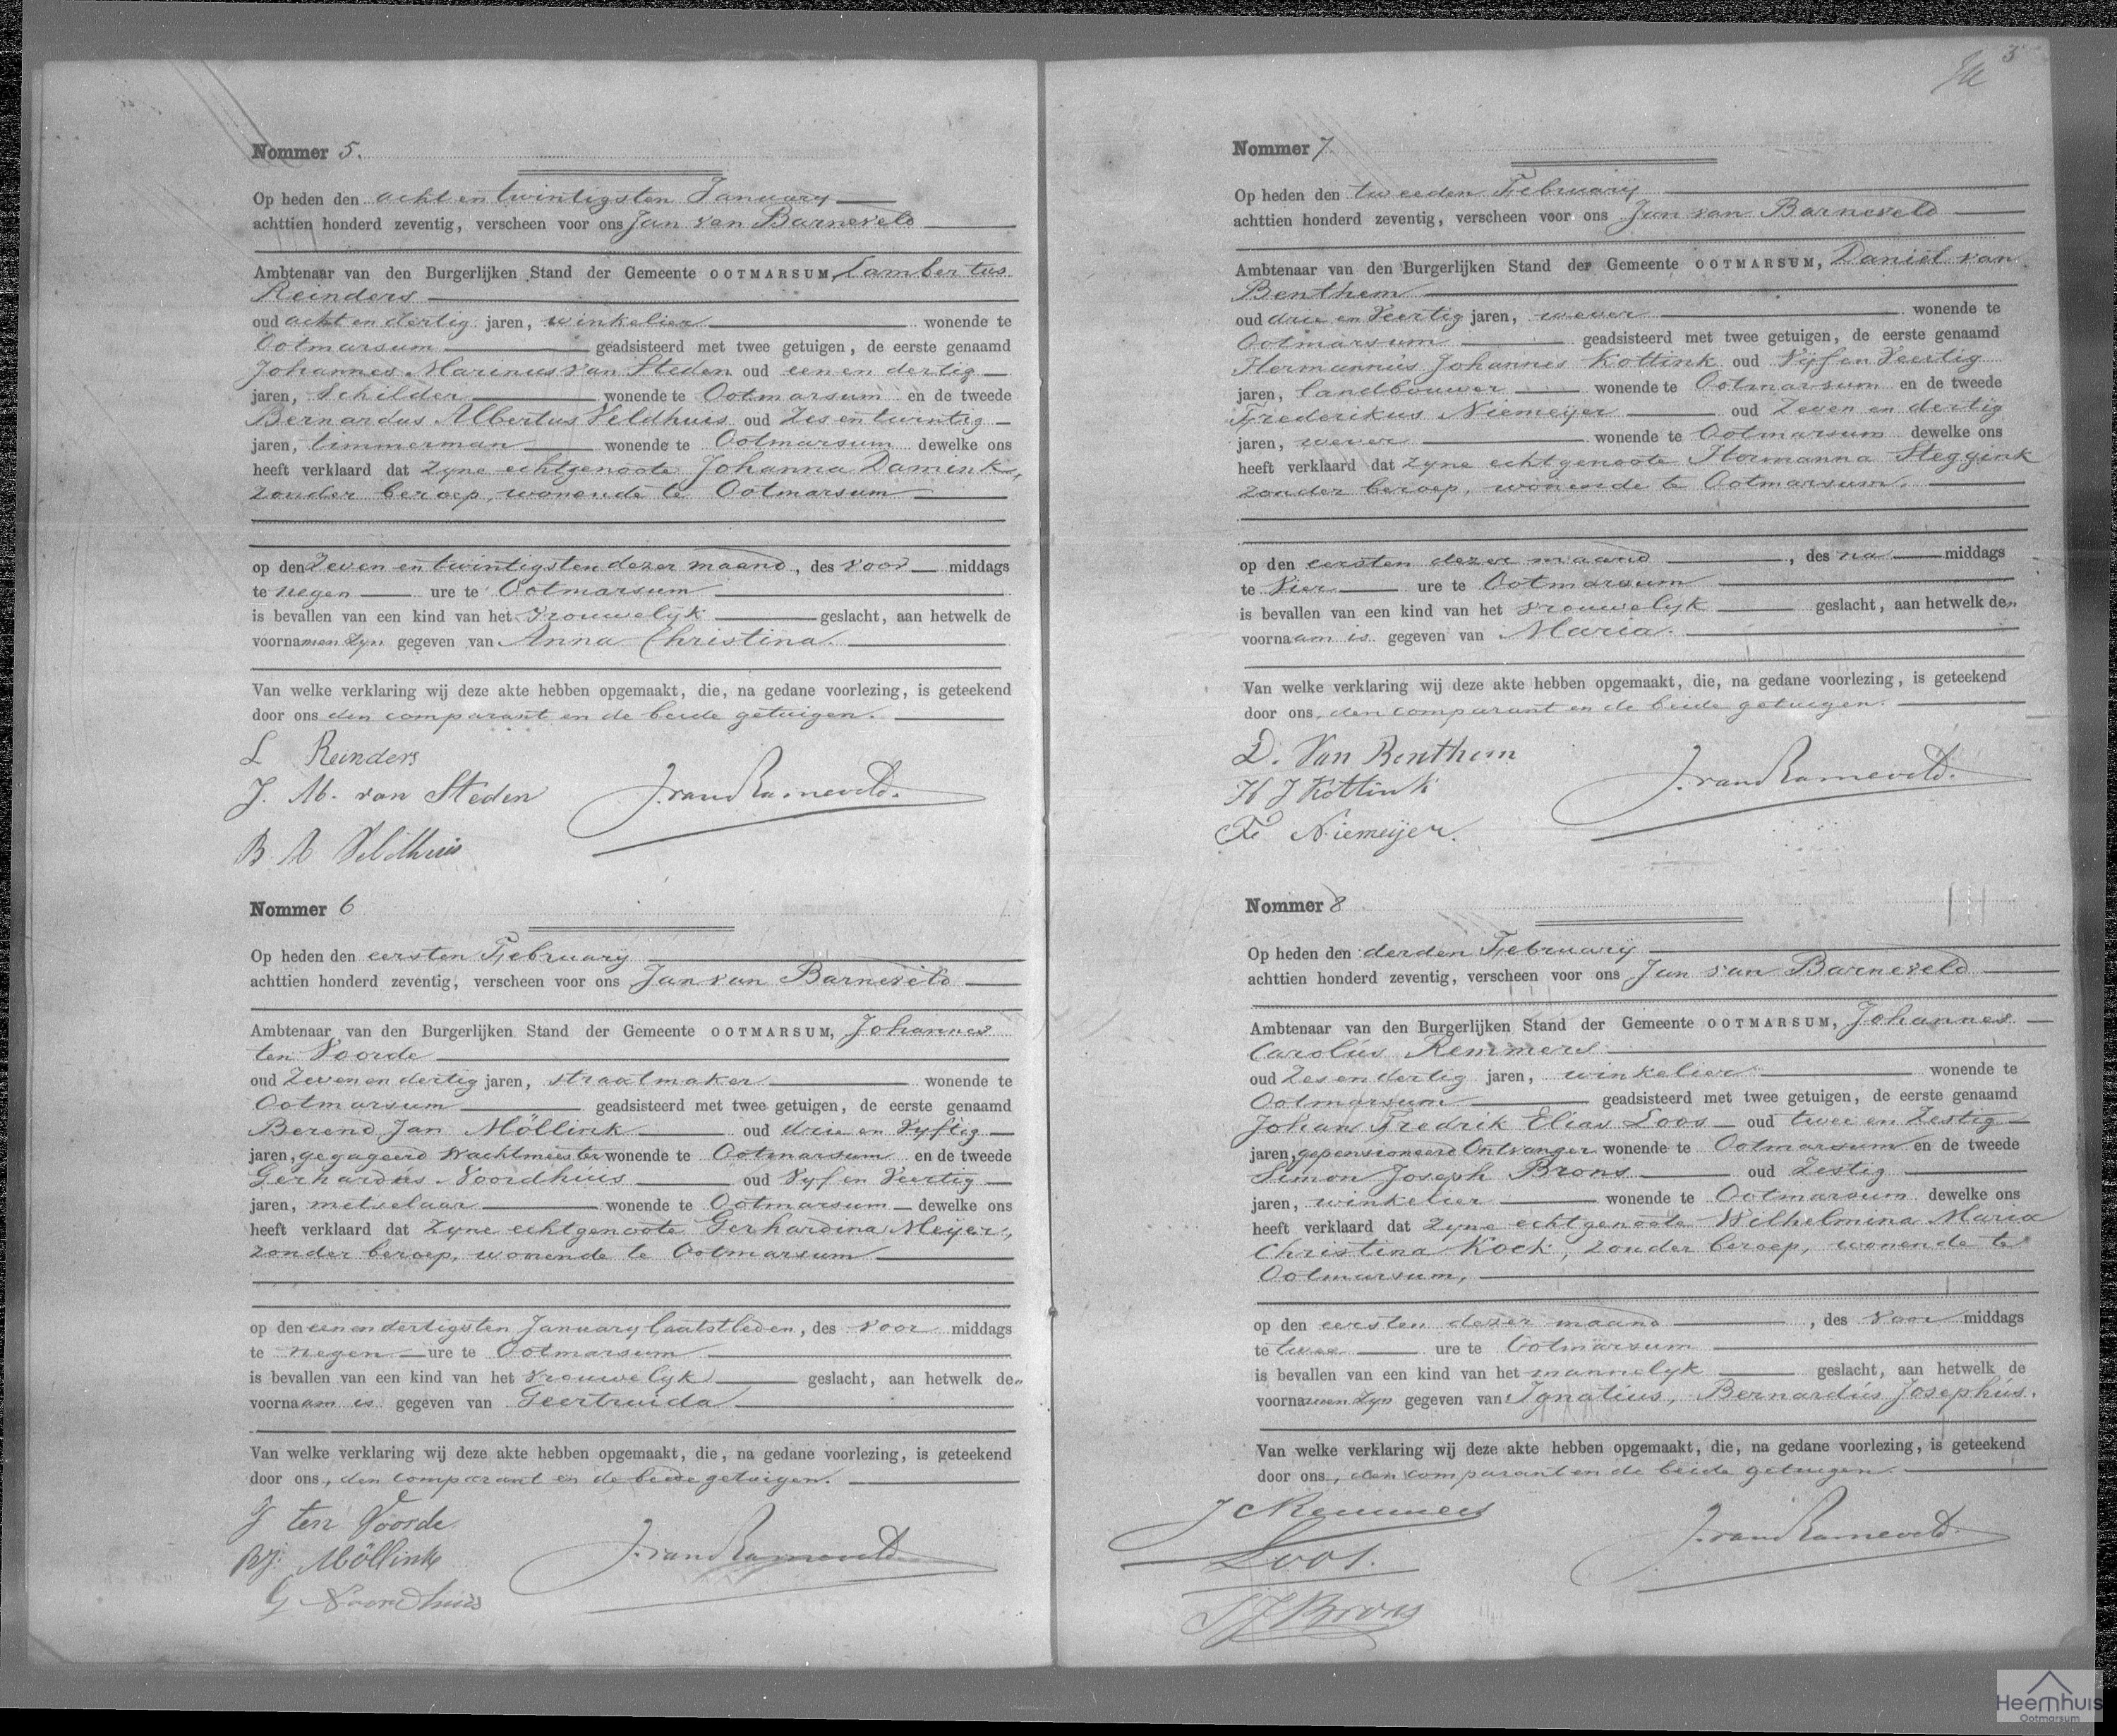 Nommer 5.
Op heden den acht en twintigsten January
achttien honderd zeventig, verscheen voor ons Jan van Barneveld
Ambtenaar van den Burgerlijken Stand der Gemeente OOTMARSUM, Lambertus
Reinders
oud acht en dertig jaren, winkelier wonende te
Ootmarsum geadsisteerd met twee getuigen, de eerste genaamd
Johannes Marinus van Steden oud een en dertig
jaren, Schilder wonende te Ootmarsum en de tweede
Bernardus Albertus Veldhuis oud Zes en twintig
jaren, timmerman wonende te Ootmarsum dewelke ons
heeft verklaard dat zyne echtgenoote Johanna Damink,
zonder beroep, wonende te Ootmarsum
op den Zeven en twintigsten dezer maand, des voor middags
te negen ure te Ootmarsum
is bevallen van een kind van het vrouwelijk geslacht, aan hetwelk de
voornamen zyn gegeven van Anna Christina.
Van welke verklaring wij deze akte hebben opgemaakt, die, na gedane voorlezing, is geteekend
door ons den comparant en de beide getuigen.
L Reinders
J. M. van Steden J. van Barneveld.
B A Veldhuis
Nommer 6
Op heden den eersten February
achttien honderd zeventig, verscheen voor ons Jan van Barneveld
Ambtenaar van den Burgerlijken Stand der Gemeente OOTMARSUM, Johannes
ten Voorde
oud Zeven en dertig jaren, straatmaker wonende te
Ootmarsum geadsisteerd met twee getuigen, de eerste genaamd
Berend Jan Möllink oud drie en Vyftig
jaren, gegageerd Wachtmeester wonende te Ootmarsum en de tweede
Gerhardús Noordhúis oud Vyf en Veertig
jaren, metselaar wonende te Ootmarsum dewelke ons
heeft verklaard dat zyne echtgenoote Gerhardina Meijer,
zonder beroep, wonende te Ootmarsum
op den een en dertigsten January laatstleden, des voor middags
te negen ure te Ootmarsum
is bevallen van een kind van het vrouwelijk geslacht, aan hetwelk den
voornaam is gegeven van Geertruida
Van welke verklaring wij deze akte hebben opgemaakt, die, na gedane voorlezing, is geteekend
door ons, den comparant en de beide getuigen.
J ten Voorde
BJ. Möllink J. van Barneveld.
G Noordhuis
3
Nommer 7
Op heden den tweeden February
achttien honderd zeventig, verscheen voor ons Jan van Barneveld
Ambtenaar van den Burgerlijken Stand der Gemeente OOTMARSUM, Daniël van
Benthem
oud drie en Veertig jaren, wever wonende te
Ootmarsum geadsisteerd met twee getuigen, de eerste genaamd
Hermannus Johannes Kottink oud Vyf en Veertig
jaren, landbouwer wonende te Ootmarsum en de tweede
Frederikus Niemeijer oud Zeven en dertig
jaren, wever wonende te Ootmarsum dewelke ons
heeft verklaard dat zyne echtgenoote Hermanna Steggink
zonder beroep, wonende te Ootmarsum.
op den eersten dezer maand, des na middags
te Vier ure te Ootmarsum
is bevallen van een kind van het vrouwelyk geslacht, aan hetwelk den
voornaam is gegeven van Maria.
Van welke verklaring wij deze akte hebben opgemaakt, die, na gedane voorlezing, is geteekend
door ons, den comparant en de beide getuigen.
D. Van Benthem
H J Kottink J. van Barneveld.
Fe Niemeijer.
Nommer 8
Op heden den derden February
achttien honderd zeventig, verscheen voor ons Jan van Barneveld
Ambtenaar van den Burgerlijken Stand der Gemeente OOTMARSUM, Johannes
Carolús Remmers
oud Zes en dertig jaren, winkelier wonende te
Ootmarsum geadsisteerd met twee getuigen, de eerste genaamd
Johan Fredrik Elias Loos oud twee en Zestig
jaren, gepensioneerd Ontvanger wonende te Ootmarsum en de tweede
Simon Joseph Brons oud Zestig
jaren, winkelier wonende te Ootmarsum dewelke ons
heeft verklaard dat zyne echtgenoote Wilhelmina Maria
Christina Kock, zonder beroep, wonende te
Ootmarsum,
op den eersten dezer maand, des voor middags
te twee ure te Ootmarsum
is bevallen van een kind van het mannelyk geslacht, aan hetwelk de
voornamen zyn gegeven van Ignatius, Bernardús Josephús.
Van welke verklaring wij deze akte hebben opgemaakt, die, na gedane voorlezing, is geteekend
door ons, den comparant en de beide getuigen.
J C Remmers
Loos. J. van Barneveld.
S J Brons
Heemhuis
Ootmarsum